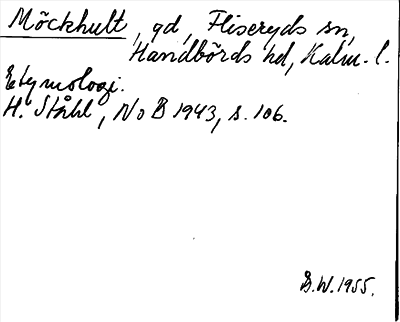 Möckhult, gd, Fliseryds sn,
Handbörds hd, Kalm. l.
Etymologi.
H. Ståhl, NoB 1943, s. 106.
B.W. 1955.